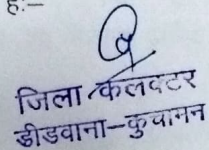 है:—
जिला कलक्टर
डीडवाना-कुचामन